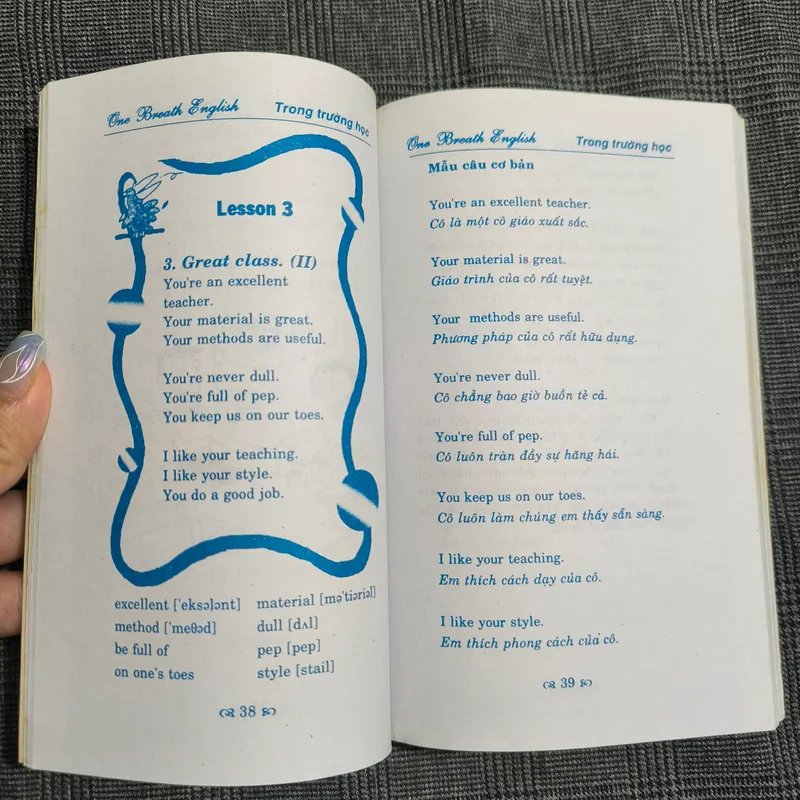 One Breath English Trong trường học
Lesson 3
3. Great class. (II)
You're an excellent
teacher.
Your material is great.
Your methods are useful.
You're never dull.
You're full of pep.
You keep us on our toes.
I like your teaching.
I like your style.
You do a good job.
excellent ['eksələnt] material [mə'tiəriəl]
method ['meθəd] dull [dʌl]
be full of pep [pep]
on one's toes style [stail]
38
One Breath English Trong trường học
Mẫu câu cơ bản
You're an excellent teacher.
Cô là một cô giáo xuất sắc.
Your material is great.
Giáo trình của cô rất tuyệt.
Your methods are useful.
Phương pháp của cô rất hữu dụng.
You're never dull.
Cô chẳng bao giờ buồn tẻ cả.
You're full of pep.
Cô luôn tràn đầy sự hăng hái.
You keep us on our toes.
Cô luôn làm chúng em thấy sẵn sàng.
I like your teaching.
Em thích cách dạy của cô.
I like your style.
Em thích phong cách của cô.
39